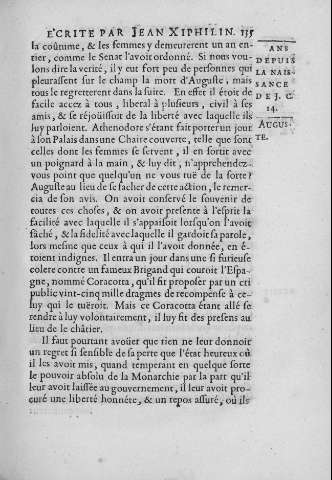 ECRITE PAR JEAN XIPHILIN. 135
la coûtume, & les femmes y demeurerent un an en-
tier, comme le Senat l'avoit ordonné. Si nous vou-
lons dire la verité, il y eut fort peu de personnes qui
pleurassent sur le champ la mort d'Auguste, mais
tous le regretterent dans la suite. En effet il étoit de
facile accez à tous, liberal à plusieurs, civil à ses
amis, & se réjoüissoit de la liberté avec laquelle ils
luy parloient. Athenodore s'étant fait porter un jour
à son Palais dans une Chaire couverte, telle que sont
celles dont les femmes se servent, il en sortit avec
un poignard à la main, & luy dit, n'apprehendez-
vous point que quelqu'un ne vous tuë de la sorte?
Auguste au lieu de se facher de cette action, le remer-
cia de son avis. On avoit conservé le souvenir de
toutes ces choses, & on avoit presente à l'esprit la
facilité avec laquelle il s'appaisoit lorsqu'on l'avoit
fâché, & la fidelité avec laquelle il gardoit sa parole,
lors mesme que ceux à qui il l'avoit donnée, en é-
toient indignes. Il entra un jour dans une si furieuse
colere contre un fameux Brigand qui couroit l'Espa-
gne, nommé Coracotta, qu'il fit proposer par un cri
public vint-cinq mille dragmes de recompense à ce-
luy qui le tuëroit. Mais ce Coracotta étant allé se
rendre à luy volontairement, il luy fit des presens au
lieu de le châtier.
Il faut pourtant avoüer que rien ne leur donnoir
un regret si sensible de sa perte que l'état heureux où
il les avoit mis, quand temperant en quelque sorte
le pouvoir absolu de la Monarchie par la part qu'il
leur avoit laissée au gouvernement, il leur avoit pro-
curé une liberté honnéte, & un repos assuré, où ils
ANS
DEPUIS
LA NAIS-
SANCE
DE J. C.
14.
AUGUS-
TE.